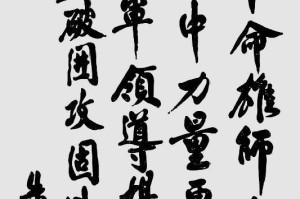 命雄師
中力量
軍領導
破囲攻固